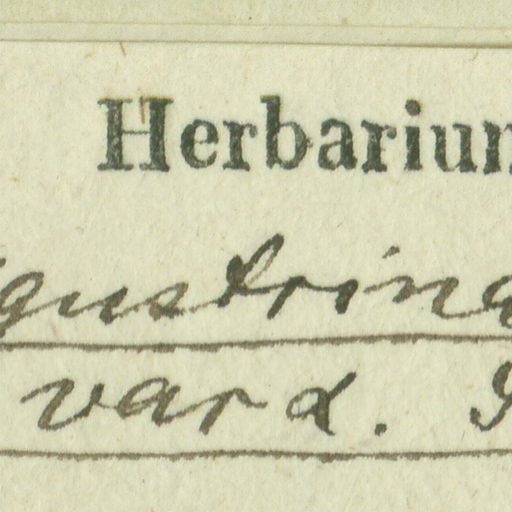 Herbariu
gustrina
var α.